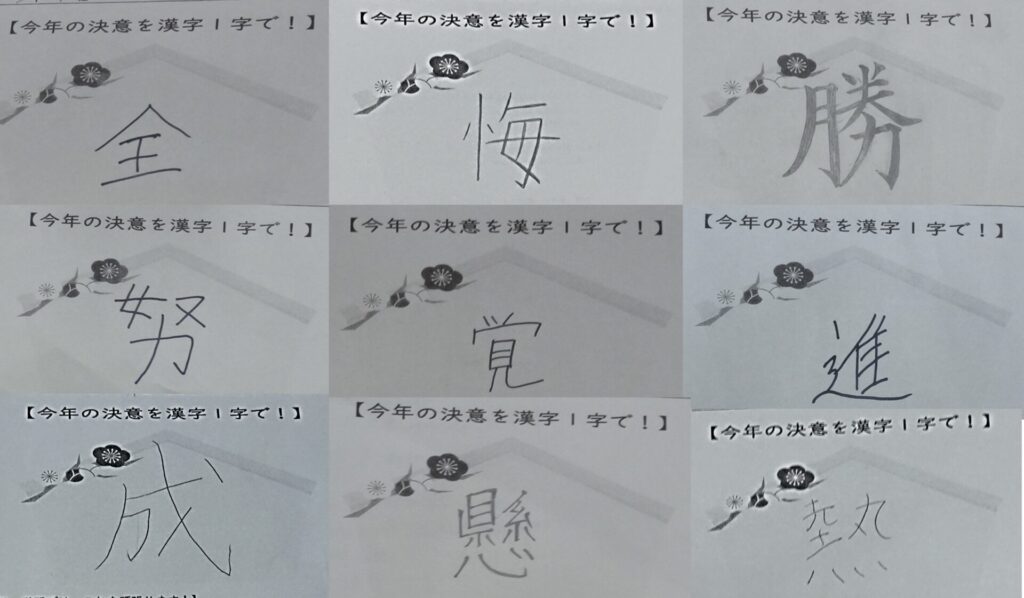 【今年の決意を漢字1字で!】
全
【今年の決意を漢字1字で!】
悔
【今年の決意を漢字1字で!】
勝
【今年の決意を漢字1字で!】
努
【今年の決意を漢字1字で!】
覚
【今年の決意を漢字1字で!】
進
【今年の決意を漢字1字で!】
成
【今年の決意を漢字1字で!】
懸
【今年の決意を漢字1字で!】
熱